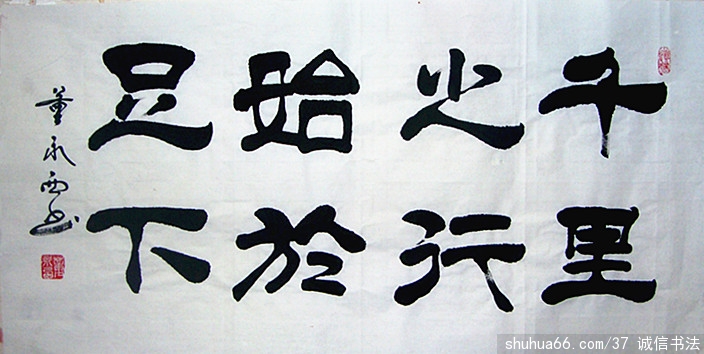 千里
之行
始於
足下
董永西书
shuhua66.com/37 诚信书法